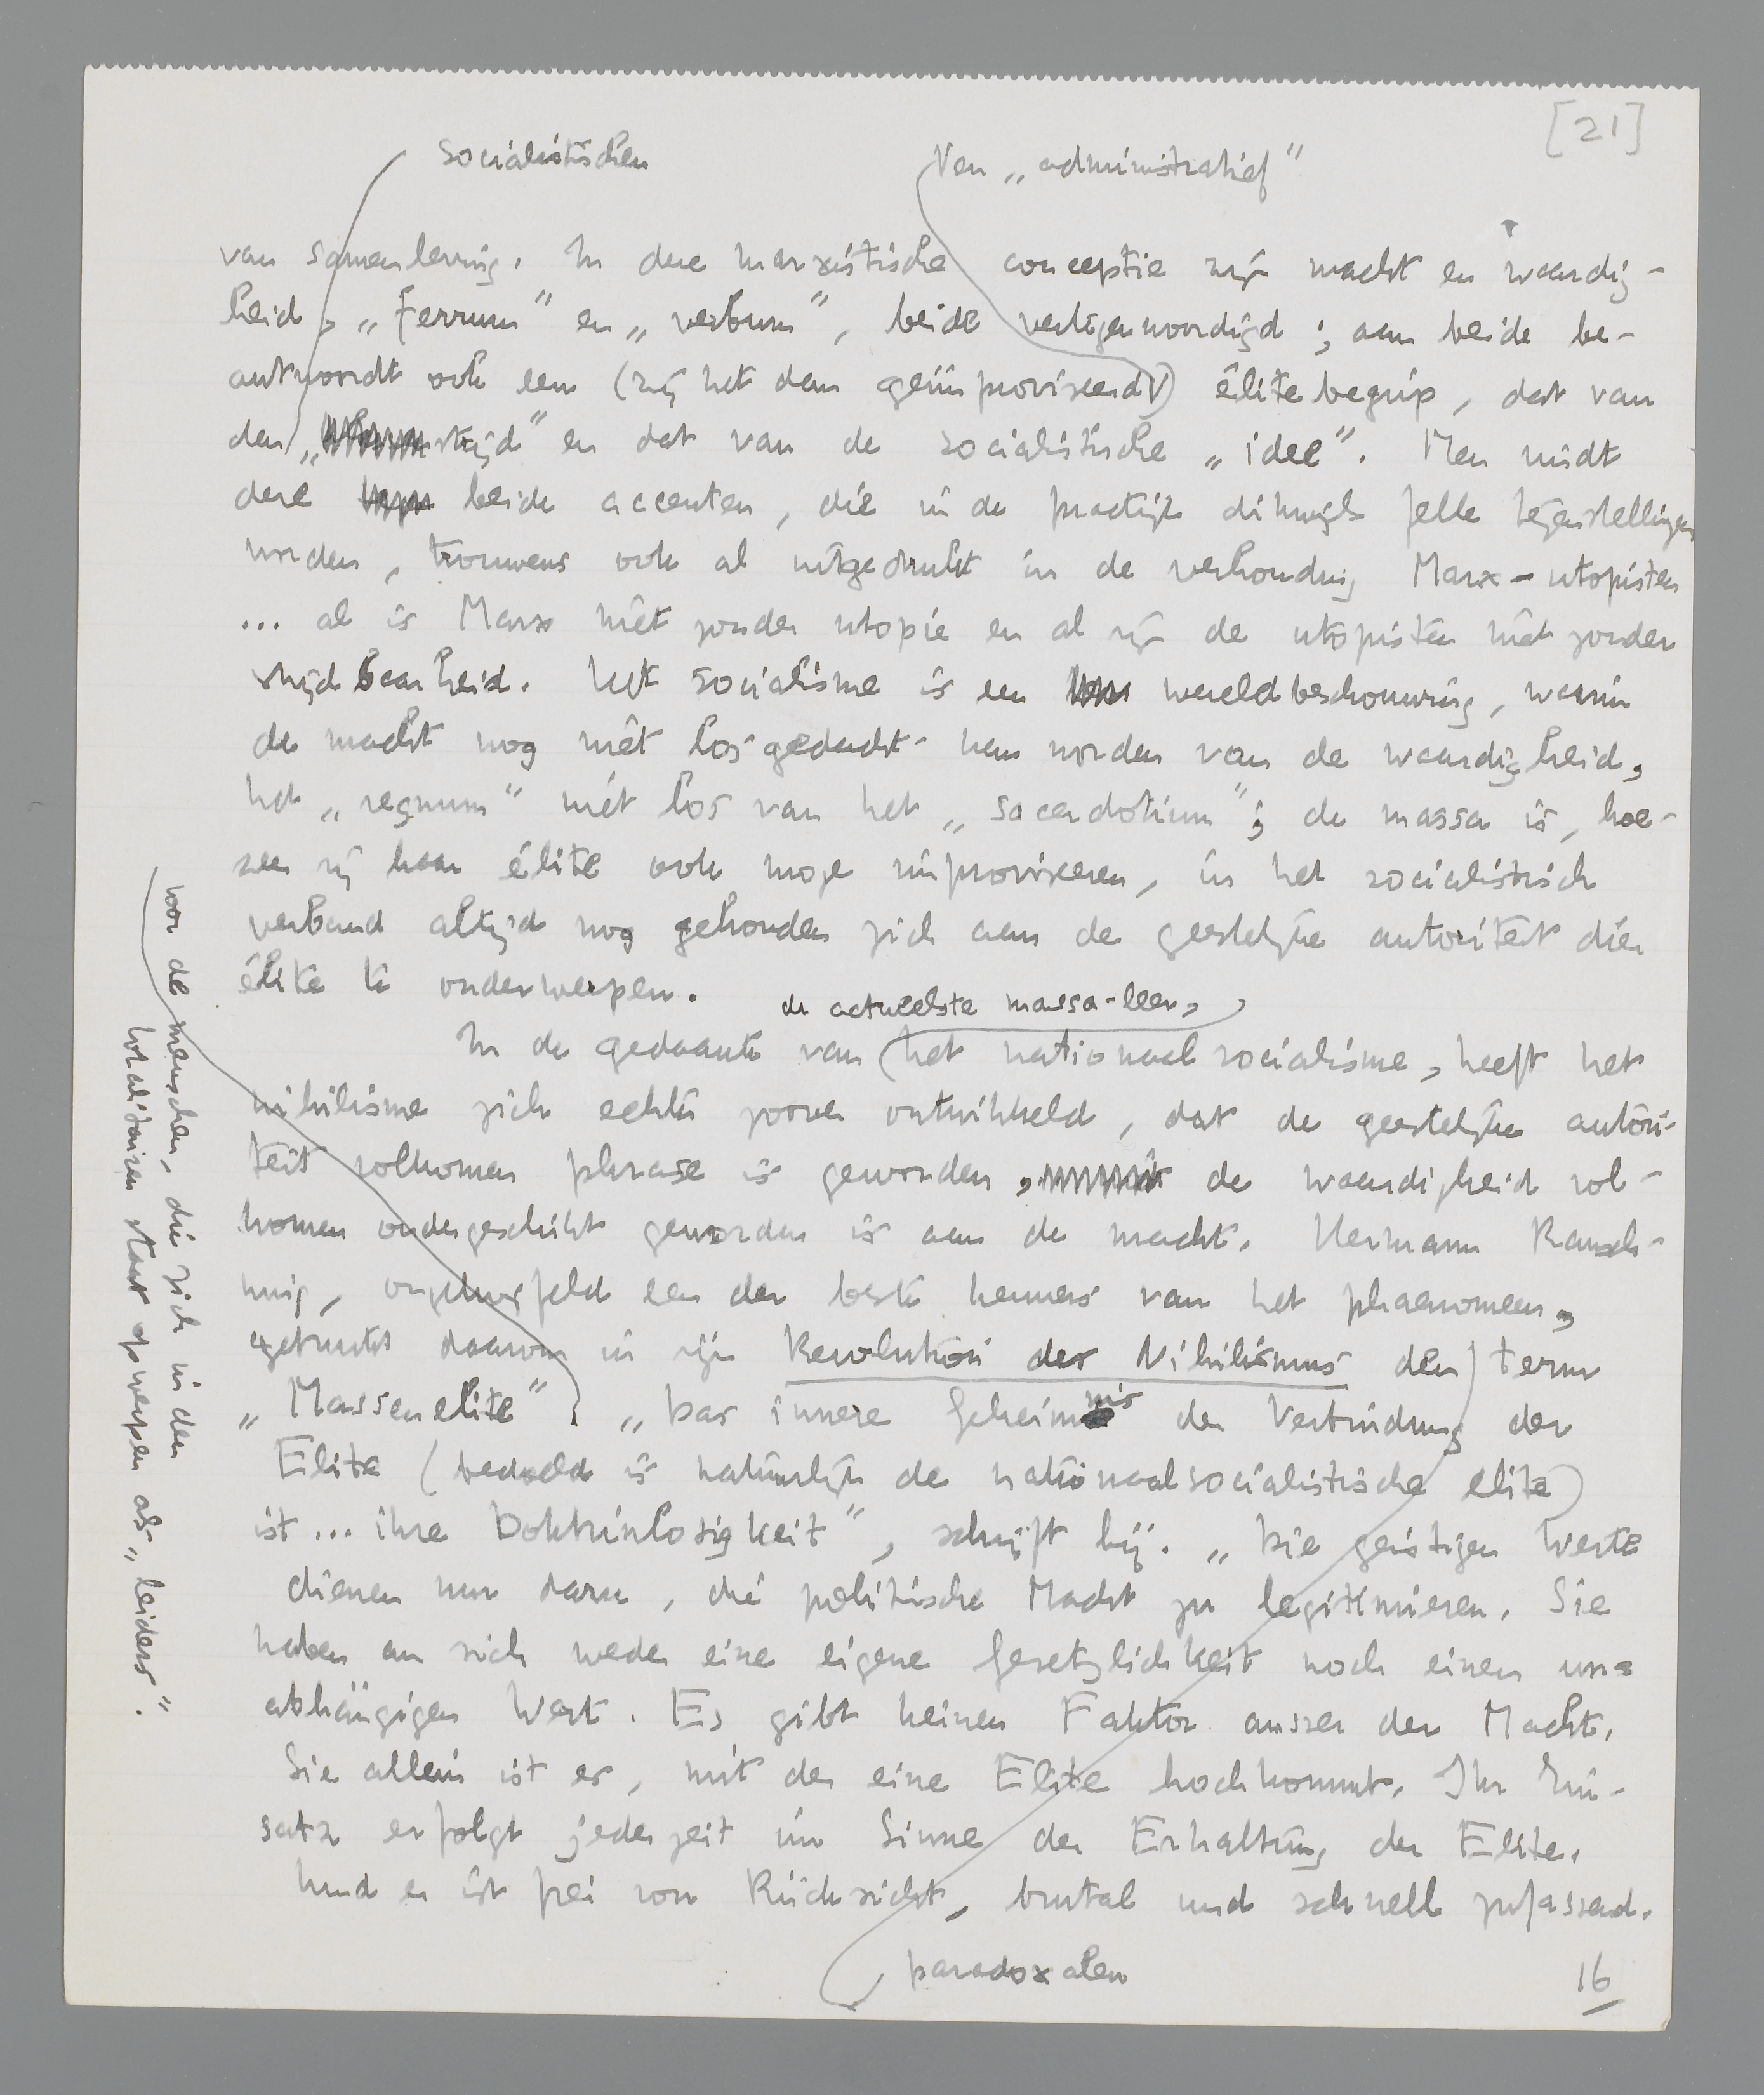 [21]
socialistischen
Ven „administratief”
van samenleving. In deze marxistische conceptie zijn macht en waardig-
heid, „ferrum” en „verbum”, beide vertegenwoordigd; aan beide be-
antwoordt ook een (zij het dan geïmproviseerd) élitebegrip, dat van
den „strijd” en dat van de socialistische „idee”. Men vindt
deze beide accenten, die in de practijk dikwijls felle tegenstellingen
worden, trouwens ook al uitgedrukt in de verhouding Marx-utopisten
... al is Marx niet zonder utopie en al zijn de utopisten niet zonder
strijdbaarheid. Het socialisme is een wereldbeschouwing, waarin
de macht nog niet losgedacht kan worden van de waardigheid,
het „regnum” niét los van het „sacerdotium”; de massa is, hoe-
zeer zij haar élite ook moge improviseeren, in het socialistisch
verband altijd nog gehouden zich aan de geestelijke autoriteit dier
élite te onderwerpen.
de actueelste massa-leer,
In de gedaante van het nationaalsocialisme, heeft het
nihilisme zich echter zoover ontwikkeld, dat de geestelijke autori-
teit volkomen phrase is geworden, de waardigheid vol-
komen ondergeschikt geworden is aan de macht. Hermann Rausch-
ning, ongetwijfeld een der beste kenners van het phaenomeen,
gebruikt daarom in zijn Revolution des Nihilismus den term
„Massenelite”. „Das innere Geheimnis der Verbindung der
Elite (bedoeld is natuurlijk de nationaalsocialistische elite)
ist ... ihre Doktrinlosigkeit”, schrijft hij. „Die geistigen Werte
dienen nur dazu, die politische Macht zu legitimieren. Sie
haben an sich weder eine eigene Gesetzlichkeit noch einen un-
abhängigen Wert. Es gibt keinen Faktor ausser der Macht.
Sie allein ist es, mit der eine Elite hochkommt. Ihr Ein-
satz erfolgt jederzeit im Sinne der Erhaltung der Elite.
Und er ist frei von Rücksicht, brutal und schnell zufassend.
paradoxalen
16
voor de menschen, die zich in den
totalitairen staat opwerpen als „leiders”.